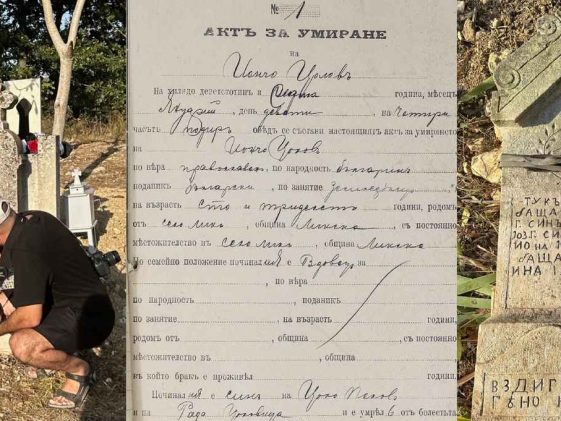 № 1
АКТЪ ЗА УМИРАНЕ
на
Цончо Цоловъ
На хиляда деветстотин и седма година, месецъ
Януарий, день девети на четири
часътъ подир обѣдъ се състави настоящия актъ за умирането
на Цончо Цоков
по вѣра православен, по народность българинъ
поданикъ български, по занятие Земледѣлец
на възрасть сто и тридесеть години, родомъ
отъ село Лика, община Ликска, съ постоянно
мѣстожителство въ село Лик, община Ликска
По семейно положение починалия е Вдовец за
, по вѣра
по народность, поданикъ
по занятие, на възрасть години,
родомъ отъ, община съ постоянно
мѣстожителство въ, община
въ който бракъ е проживѣлъ години.
Починалия е синъ на Цоко
и на Рада и е умрѣлъ отъ болѣстьта
ТУКЪ
БАЩА
Г. СИН
ИО НА 1
БАЩА
ИНА 1
ВЗДИГ
ГѢНО